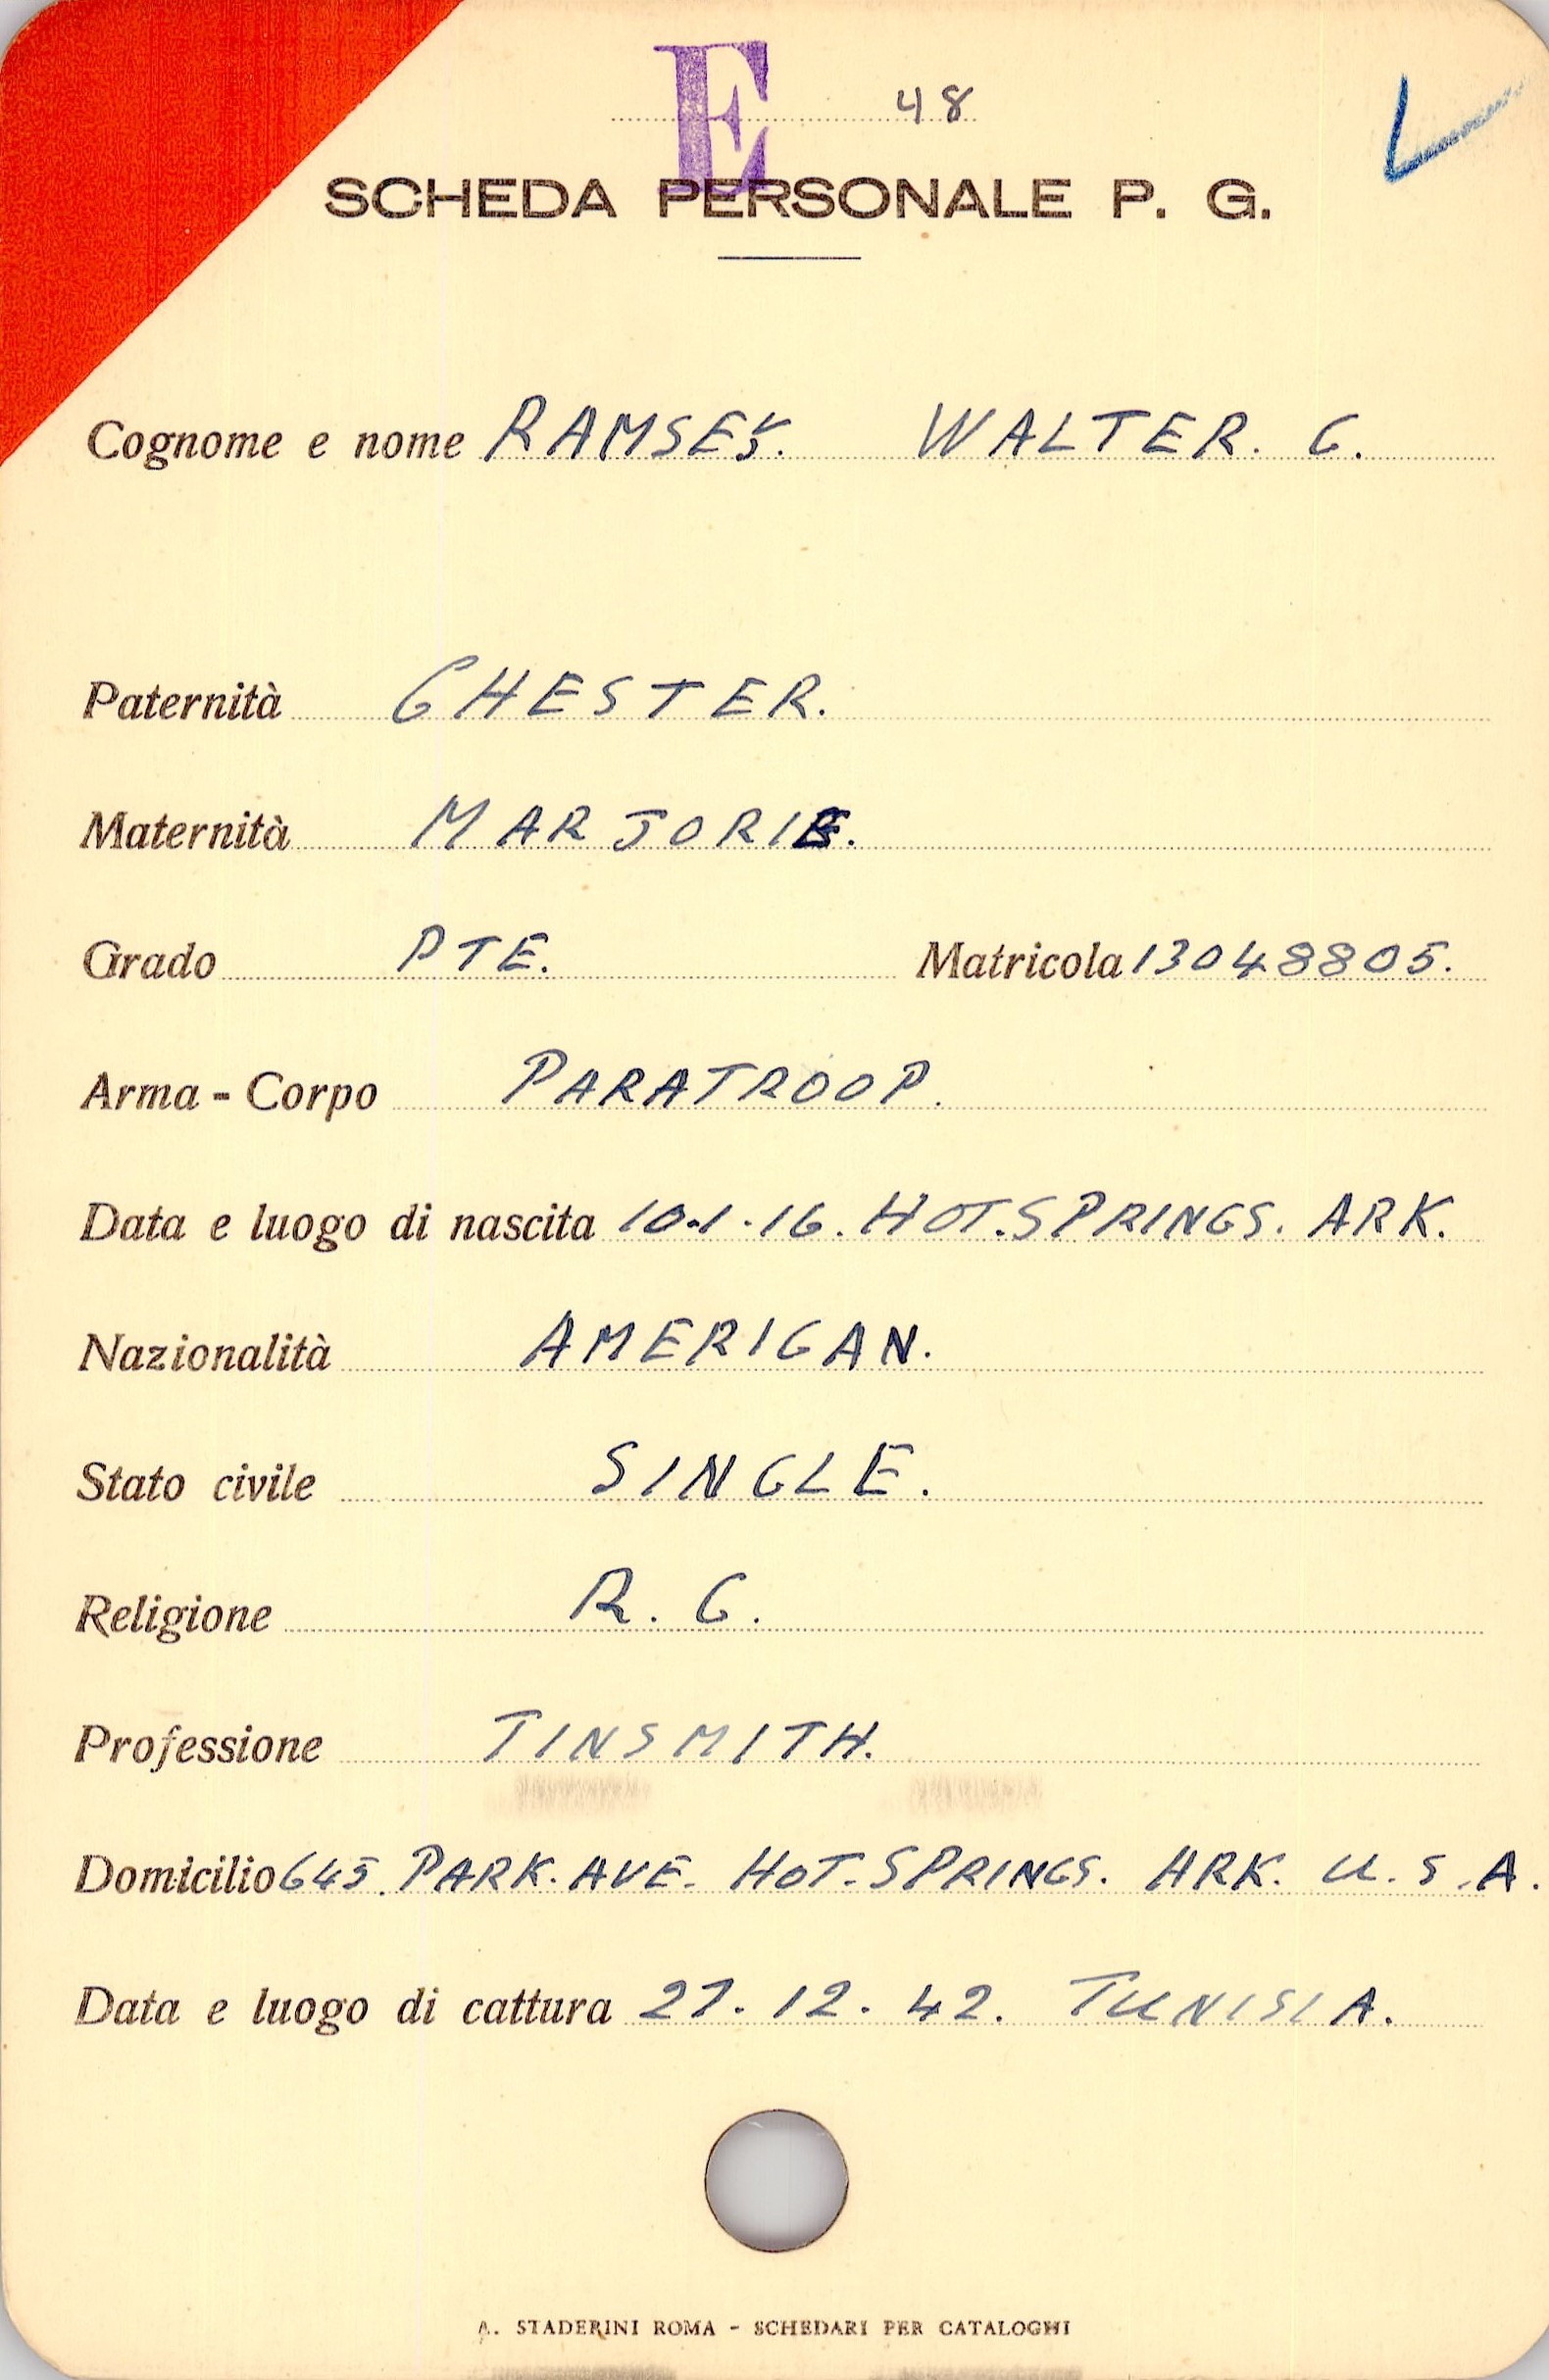 E 48
SCHEDA PERSONALE P. G.
Cognome e nome RAMSEY. WALTER. C.
Paternità CHESTER.
Maternità MARJORIE.
Grado PTE. Matricola 13048805.
Arma - Corpo PARATROOP.
Data e luogo di nascita 10.1.16. HOT.SPRINGS. ARK.
Nazionalità AMERICAN.
Stato civile SINGLE.
Religione R. C.
Professione TINSMITH.
Domicilio 645. PARK. AVE. HOT. SPRINGS. ARK. U. S. A.
Data e luogo di cattura 27. 12. 42. TUNISIA.
A. STADERINI ROMA - SCHEDARI PER CATALOGHI